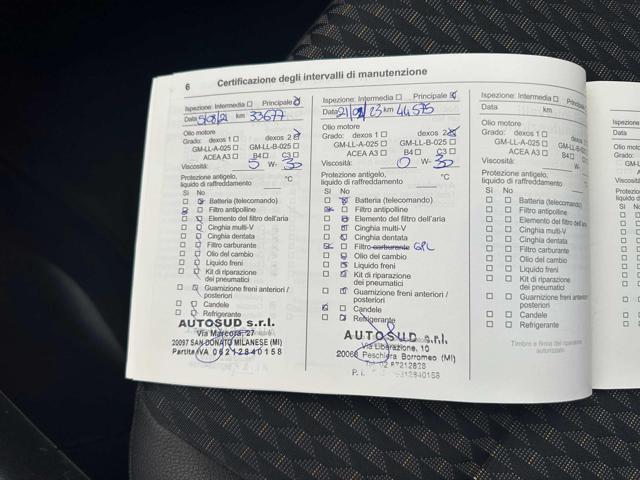 6 Certificazione degli intervalli di manutenzione
Ispezione: Intermedia Principale
Data km 33677
Olio motore
Grado: dexos 1 dexos 2
GM-LL-A-025 GM-LL-B-025
ACEA A3 B4 C3
Viscosità: 0 W- 30
Protezione antigelo,
liquido di raffreddamento °C
Sì No
Batteria (telecomando)
Filtro antipolline
Elemento del filtro dell'aria
Cinghia multi-V
Cinghia dentata
Filtro carburante
Olio del cambio
Liquido freni
Kit di riparazione
dei pneumatici
Guarnizione freni anteriori /
posteriori
Candele
Refrigerante
AUTOSUD s.r.l.
Via Marcora, 27
20097 SAN DONATO MILANESE (MI)
Partita IVA 06212840158
Ispezione: Intermedia Principale
Data 23 km 44575
Olio motore
Grado: dexos 1 dexos 2
GM-LL-A-025 GM-LL-B-025
ACEA A3 B4 C3
Viscosità: 0 W- 30
Protezione antigelo,
liquido di raffreddamento °C
Sì No
Batteria (telecomando)
Filtro antipolline
Elemento del filtro dell'aria
Cinghia multi-V
Cinghia dentata
Filtro carburante GPL
Olio del cambio
Liquido freni
Kit di riparazione
dei pneumatici
Guarnizione freni anteriori /
posteriori
Candele
Refrigerante
AUTOSUD s.r.l.
Via Liberazione, 10
20068 Peschiera Borromeo (MI)
Tel. 02
Ispezione: Intermedia Principale
Data km
Olio motore
Grado: dexos 1 dexos 2
GM-LL-A-025 GM-LL-B-025
ACEA A3 B4 C3
Viscosità: W-
Protezione antigelo,
liquido di raffreddamento °C
Sì No
Batteria (telecomando)
Filtro antipolline
Elemento del filtro dell'aria
Cinghia multi-V
Cinghia dentata
Filtro carburante
Olio del cambio
Liquido freni
Kit di riparazione
dei pneumatici
Guarnizione freni anteriori /
posteriori
Candele
Refrigerante
Timbro e firma del riparatore
autorizzato
Ispezione:
Data
Olio motore
Grado: